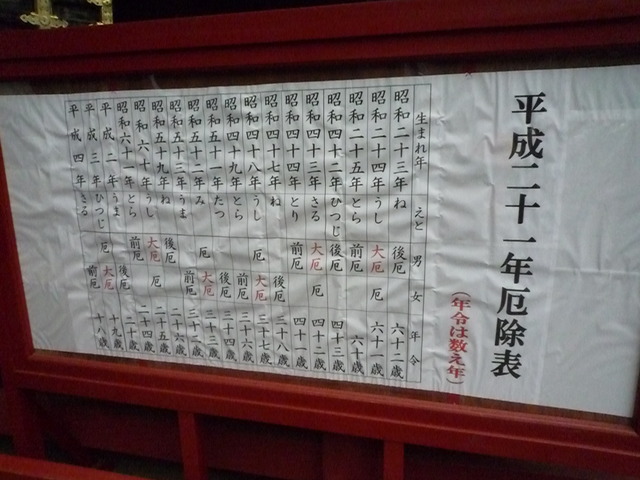 平成二十一年厄除表
（年令は数え年）
生まれ年 えと 男 女 年令
昭和二十三年ね 後厄 六十二歳
昭和二十四年うし 大厄 厄 六十一歳
昭和二十五年とら 前厄 六十歳
昭和四十二年ひつじ 後厄 四十三歳
昭和四十三年さる 大厄 厄 四十二歳
昭和四十四年とり 前厄 四十一歳
昭和四十七年ね 後厄 三十八歳
昭和四十八年うし 厄 大厄 三十七歳
昭和四十九年とら 前厄 三十六歳
昭和五十一年たつ 後厄 三十四歳
昭和五十二年み 厄 大厄 三十三歳
昭和五十三年うま 前厄 三十二歳
昭和五十九年ね 後厄 二十六歳
昭和六十年うし 大厄 厄 二十五歳
昭和六十一年とら 前厄 二十四歳
平成二年うま 後厄 二十歳
平成三年ひつじ 厄 大厄 十九歳
平成四年さる 前厄 十八歳